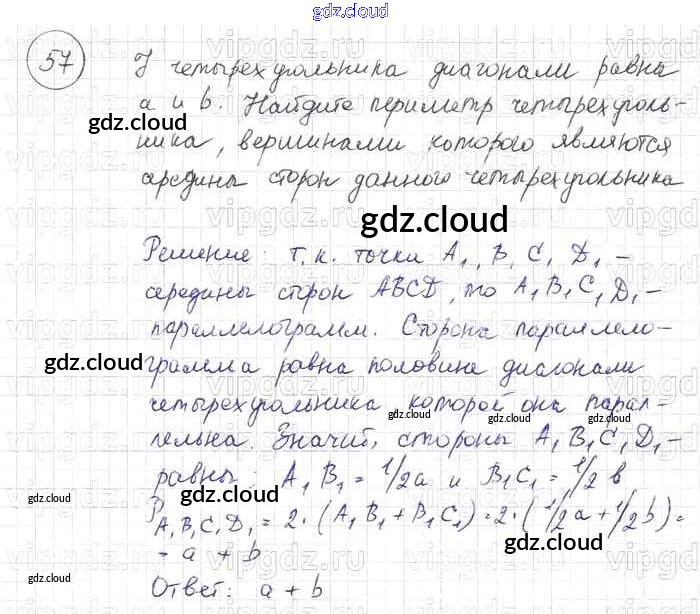 gdz.cloud
57 У четырехугольника диагонали равны
a и b. Найдите периметр четырехуголь-
gdz.cloud
ника, вершинами которого являются
середины сторон данного четырехугольника
gdz.cloud
Решение: т.к. точки A₁, B₁ C₁ D₁ -
середины сторон ABCD, то A₁ B₁ C₁ D₁ -
параллелограмм. Сторона параллело-
gdz.cloud
грамма равна половине диагонали
четырехугольника, которой она парал-
gdz.cloud gdz.cloud
лельна. Значит, стороны A₁ B₁ C₁ D₁ -
равны: A₁ B₁ = 1/2a и B₁C₁ = 1/2 b
gdz.cloud gdz.cloud gdz.cloud
P A₁B₁C₁D₁ = 2·(A₁B₁+B₁C₁)=2·(1/2a+1/2b)=
= a + b
gdz.cloud gdz.cloud
Ответ: a + b
gdz.cloud